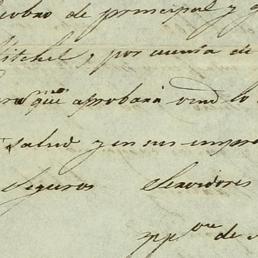 cobro de principal y g
itchel, por cuenta de
ra que aprobará vmd lo
salud y en sus impre
Seguros Servidores
pp. de